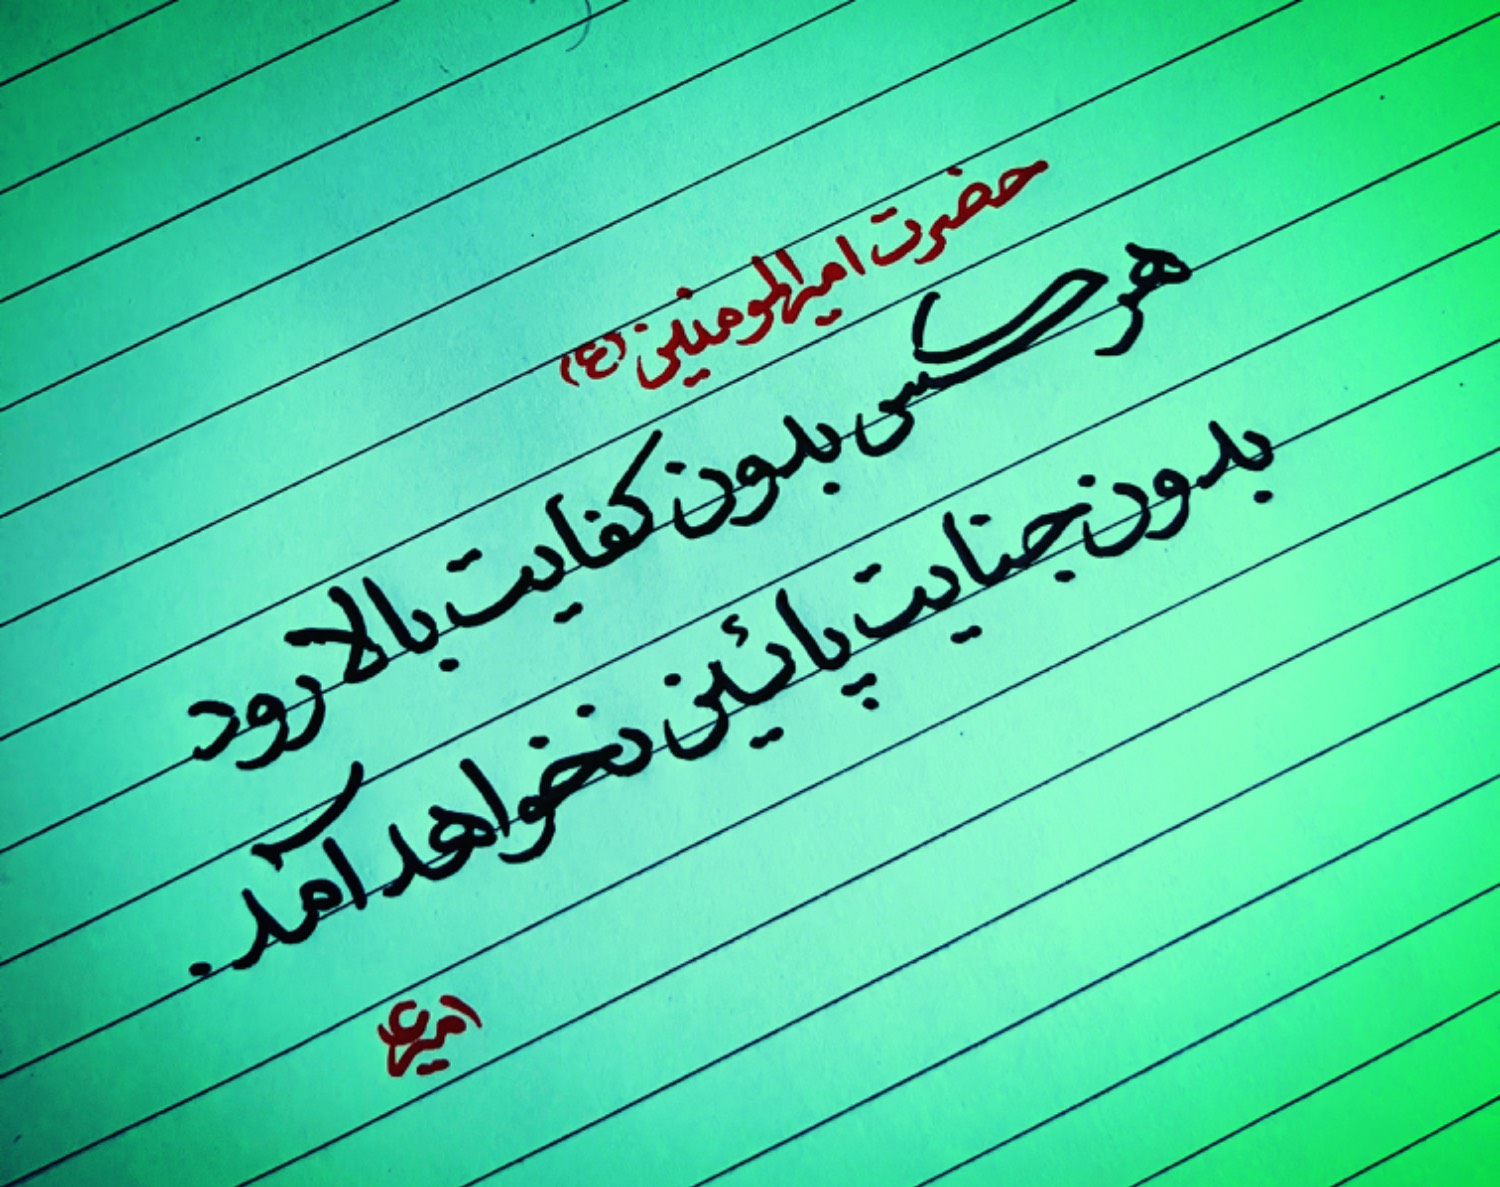 حضرت امیرالمومنین (ع)
هر کس بدون کفایت بالا رود
بدون جنایت پائین نخواهد آمد.